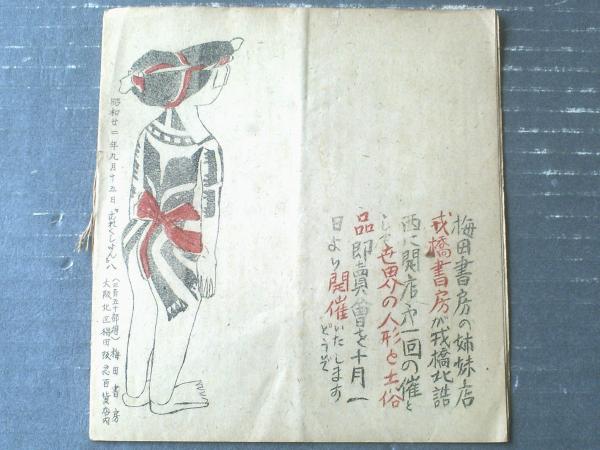 梅田書房の姉妹店
戎橋書房が戎橋北詰
西に開店第一回の催と
して世界の人形と土俗
品即賣會を十月一
日より開催いたします
どうぞ
昭和廿二年九月十五日 これくしょん八
(三百五十部超) 梅田書房
大阪北区梅田阪急百貨店内